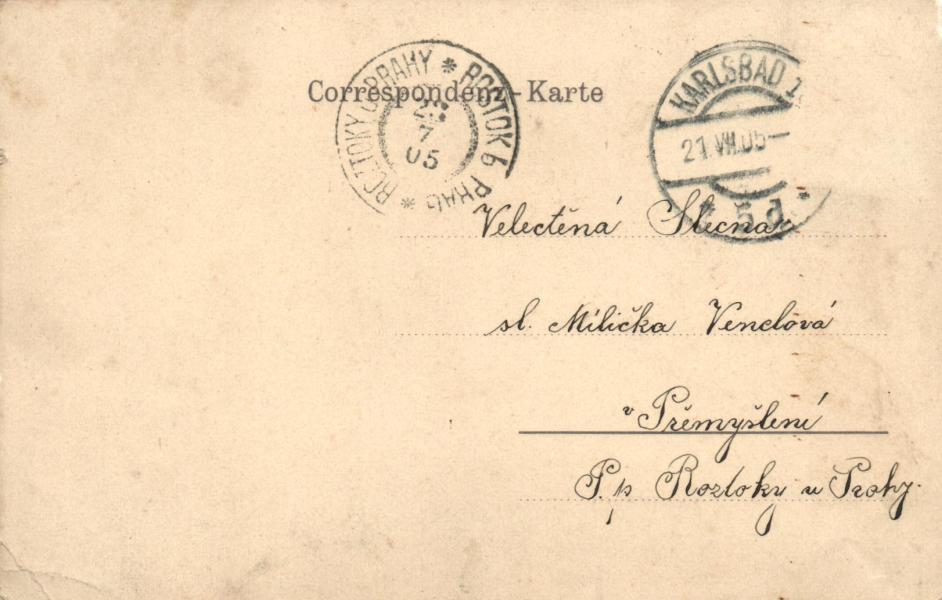 Correspondenz-Karte
ROZTOKY U PRAHY * ROSTOK b PRAG *
7
05
KARLSBAD 1
21.VII.05
* 5d *
Velectěná Slečna
sl. Milička Venclová
v Přemyšlení
P. p Roztoky u Prahy.